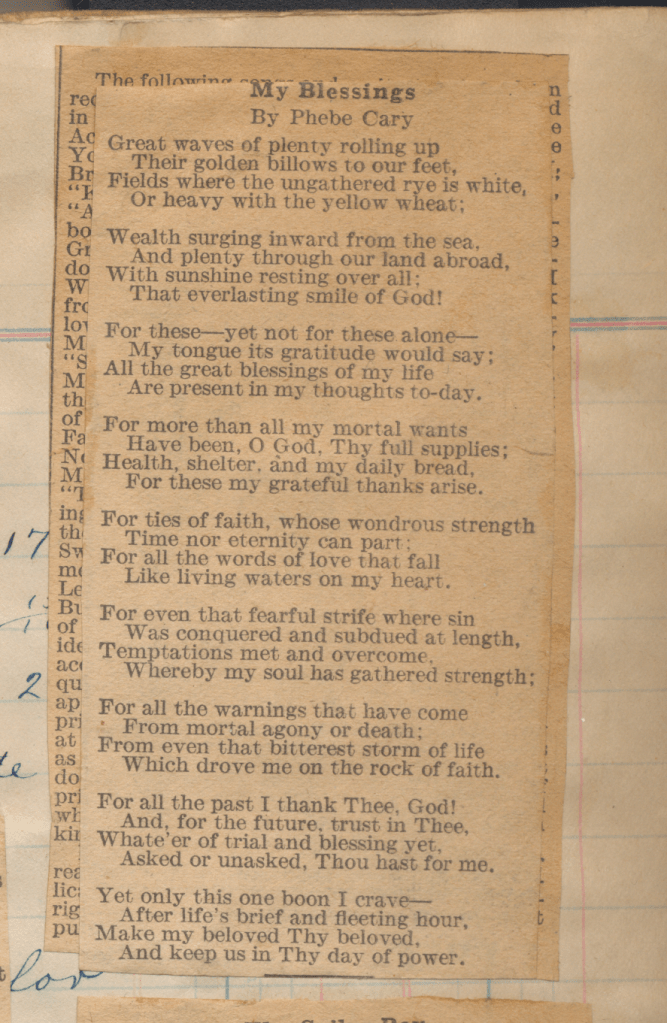 The following
My Blessings
By Phebe Cary
Great waves of plenty rolling up
Their golden billows to our feet,
Fields where the ungathered rye is white,
Or heavy with the yellow wheat;
Wealth surging inward from the sea,
And plenty through our land abroad,
With sunshine resting over all;
That everlasting smile of God!
For these—yet not for these alone—
My tongue its gratitude would say;
All the great blessings of my life
Are present in my thoughts to-day.
For more than all my mortal wants
Have been, O God, Thy full supplies;
Health, shelter, and my daily bread,
For these my grateful thanks arise.
For ties of faith, whose wondrous strength
Time nor eternity can part;
For all the words of love that fall
Like living waters on my heart.
For even that fearful strife where sin
Was conquered and subdued at length,
Temptations met and overcome,
Whereby my soul has gathered strength;
For all the warnings that have come
From mortal agony or death;
From even that bitterest storm of life
Which drove me on the rock of faith.
For all the past I thank Thee, God!
And, for the future, trust in Thee,
Whate'er of trial and blessing yet,
Asked or unasked, Thou hast for me.
Yet only this one boon I crave—
After life's brief and fleeting hour,
Make my beloved Thy beloved,
And keep us in Thy day of power.
17
2